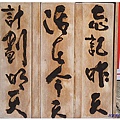 忘記昨天
活在今天
計劃明天